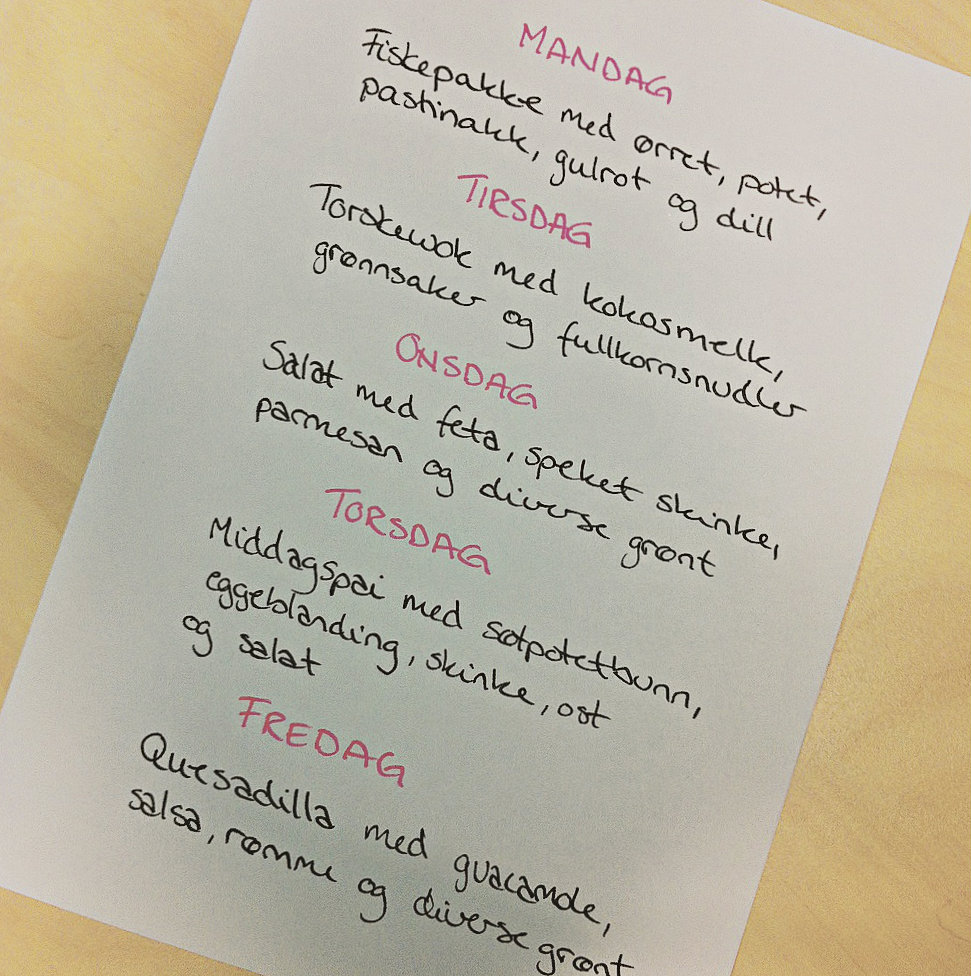 MANDAG
Fiskepakke med ørret, potet,
pastinakk, gulrot og dill
TIRSDAG
Torskewok med kokosmelk,
grønnsaker og fullkornsnudler
ONSDAG
Salat med feta, speket skinke,
parmesan og diverse grønt
TORSDAG
Middagspai med søtpotetbunn,
eggeblanding, skinke, ost
og salat
FREDAG
Quesadilla med guacamole,
salsa, rømme og diverse grønt